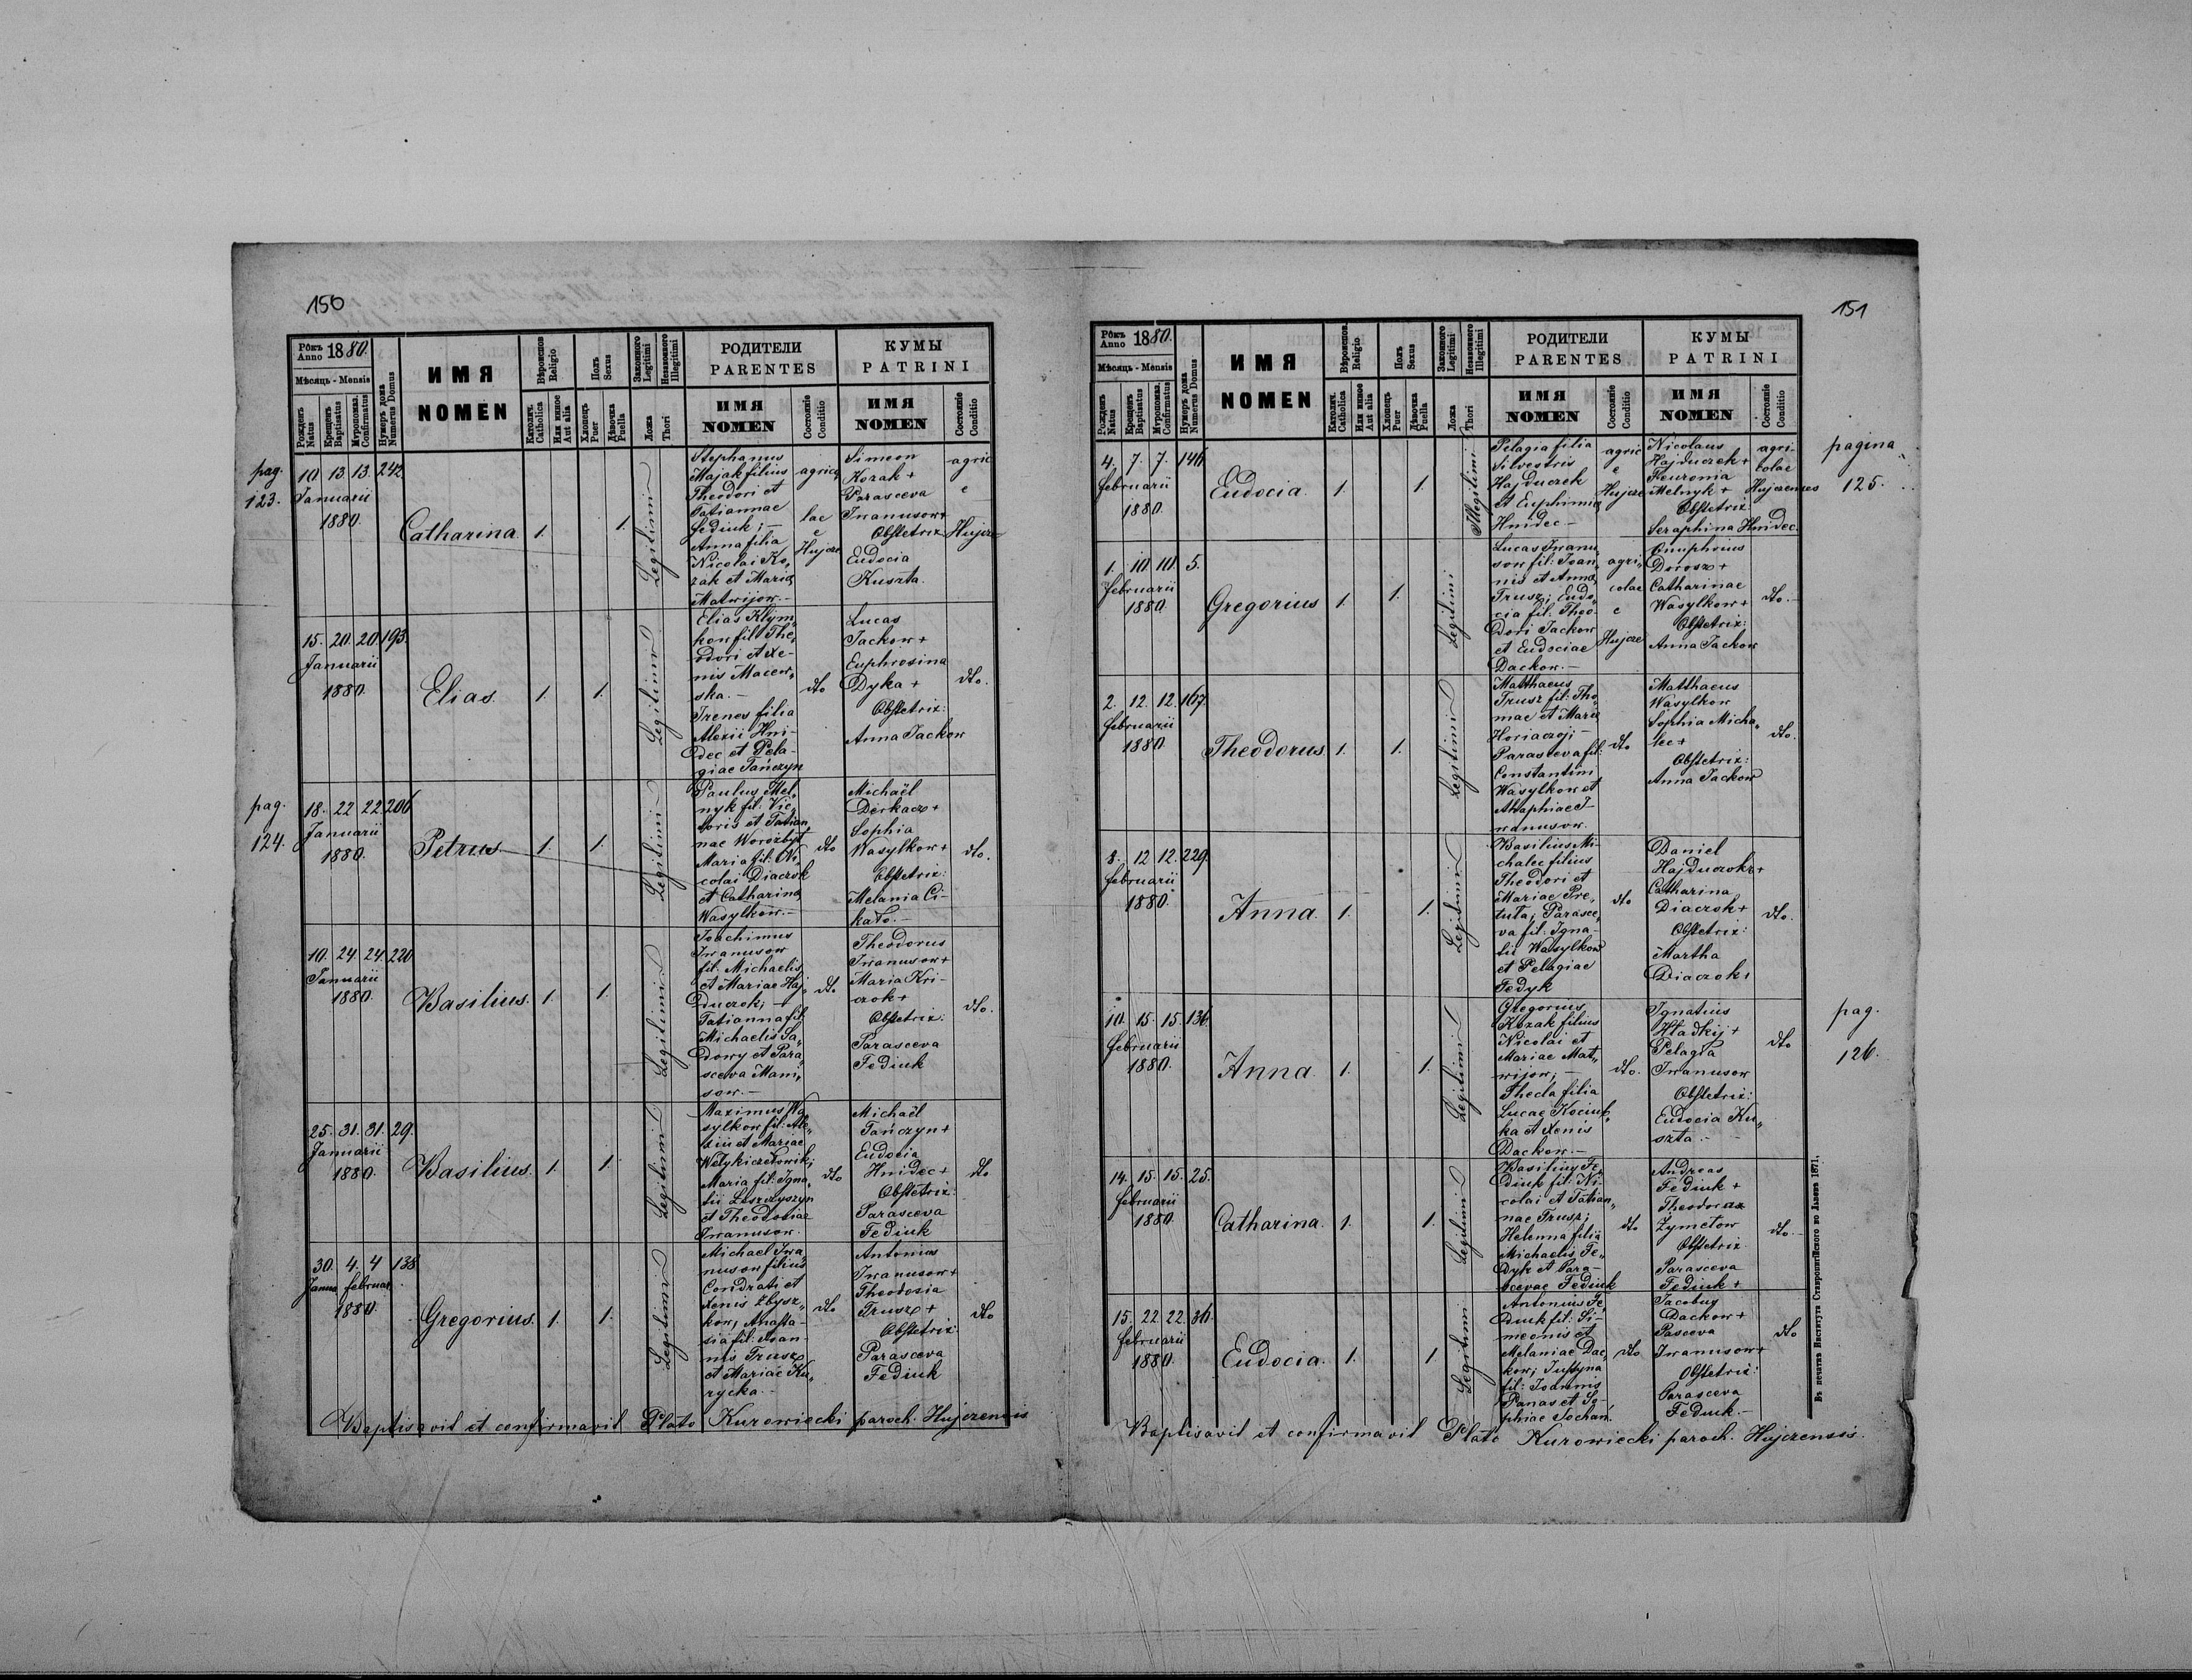 150
Рôкъ Anno 1880.
Мѣсяць - Mensis
Рожденъ Natus
Крещенъ Baptisatus
Мνропомаз. Confirmatus
Нумеръ дома Numerus Domus
ИМЯ
NOMEN
Вѣроиспов Religio
Католич. Catholica
Или инное Aut alia
Полъ Sexus
Хлопець Puer
Дѣвочка Puella
Законного Legitimi
Незаконного Illegitimi
Ложа Thori
РОДИТЕЛИ
PARENTES
ИМЯ
NOMEN
Состоянiе Conditio
КУМЫ
PATRINI
ИМЯ
NOMEN
Состоянiе Conditio
pag.
123.
10. 13. 13. 242.
Januarii
1880.
Catharina. 1. 1.
Legitimi
Stephanus
Majak filius
Theodori et
Tatiannae
Fediuk; —
Anna filia
Nicolai Ko„
zak et Maria
Matwijow. —
agrico„
lae
e
Hujcze
Simeon
Kozak +
Parasceva
Iwanusow+
Obstetrix
Eudocia
Kuszta.
agric
e
Hujcze
15. 20. 20. 193.
Januarii
1880.
Elias. 1. 1.
Legitimi
Elias Klym„
kow fil: The„
odori et Xe-
nis Macew„
ska. —
Irenes filia
Alexii Hni-
dec et Pela-
giae Tańczyn
dto
Lucas
Jackow +
Euphrosina
Dyka +
Obstetrix:
Anna Jackow
dto.
pag.
124.
18. 22 22. 206
Januarii
1880.
Petrus 1. 1.
Legitimi
Paulus Mel„
nyk fil: Vic„
toris et Tatian
nae Worożbyt
Maria fil: Ni„
colai Diaczok
et Catharina
Wasylkow. —
dto
Michaël
Derkacz +
Sophia
Wasylkow +
Obstetrix:
Melania Ci-
kało. —
dto.
10. 24. 24. 220
Januarii
1880.
Basilius. 1. 1.
Legitimi
Joachimus
Iwanusow
fil. Michaelis
et Mariae Haj„
duczok; —
Tatianna fil:
Michaelis Sa„
dowy et Para
sceva Mani„
sow. —
dto
Theodorus
Iwanusow+
Maria Kri-
czok +
Obstetrix:
Parasceva
Fediuk
dto.
25. 31. 31. 29.
Januarii
1880.
Basilius. 1. 1.
Legitimi
Maximus Wa„
sylkow fil: Ale„
xii et Mariae
Maria fil: Igna„
tii Leszczyszyn
et Theodosiae
Iwanusow.
dto
Michaël
Tańczyn +
Eudocia
Hnidec +
Obstetrix:
Parasceva
Fediuk
dto
30. 4. 4 138
Janua februar
1880.
Gregorius. 1. 1.
Legitimi
Michael Iwa„
nuson filius
Condrati et
Xenis Zbysz„
kow; Anasta-
sia fil: Ioan-
nis Trusz
et Mariae Ku„
rycka. —
dto
Antonius
Iwanusow+
Theodosia
Trusz +
Obstetrix:
Parasceva
Fediuk
dto
Baptisavit et confirmavit Plato Kurowiecki paroch. Hujczensis
151
Рôкъ Anno 1880.
Мѣсяць - Mensis
Рожденъ Natus
Крещенъ Baptisatus
Мνропомаз. Confirmatus
Нумеръ дома Numerus Domus
ИМЯ
NOMEN
Вѣроиспов. Religio
Католич. Catholica
Или инное Aut alia
Полъ Sexus
Хлопець Puer
Дѣвочка Puella
Законного Legitimi
Незаконного Illegitimi
Ложа Thori
РОДИТЕЛИ
PARENTES
ИМЯ
NOMEN
Состоянiе Conditio
КУМЫ
PATRINI
ИМЯ
NOMEN
Состоянiе Conditio
4. 7. 7. 146
februarii
1880.
Eudocia. 1. 1.
Illegitimi
Pelagia filia
Silvestris
Hajduczek
et Euphimia
Hnidec —
agric
e
Hujcze
Nicolaus
Hajduczek +
Feuronia
Melnyk +
Obstetrix:
Seraphina Hnidec.
agri-
colae
Hujczenses
pagina
125.
1. 10. 10. 5.
februarii
1880.
Gregorius 1. 1.
Legitimi
Lucas Iwanu„
sow fil: Ioan„
nis et Anna
Trusz; Eudo„
cia fil: Theo-
dori Jackow
et Eudociae
Dackow. —
agri„
colae
e
Hujcze
Onuphrius
Dorosz +
Catharinae
Wasylkow +
Obstetrix:
Anna Jackow
dto. —
2. 12. 12. 167.
februarii
1880.
Theodorus. 1. 1.
Legitimi
Matthaeus
Trusz fil: Tho„
mae et Maria
Horiaczoji —
Parasceva fil:
Constantini
Wasylkow et
Ahaphiae I-
wanusow.
dto
Matthaeus
Wasylkow
Sophia Micha„
lec +
Obstetrix:
Anna Jackow
dto.
8. 12 12. 229.
februarii
1880.
Anna. 1. 1.
Legitimi
Basilius Mi-
chalec filius
Theodori et
Mariae Pre„
tuta; Parasce„
va fil: Igna-
tii Wasylkow
et Pelagiae
Fedyk
dto
Daniel
Hajduczok +
Catharina
Diaczok +
Obstetrix:
Martha
Diaczok +
dto.
10. 15. 15. 136.
februarii
1880.
Anna. 1. 1.
Legitimi
Gregorius
Kozak filius
Nicolai et
Mariae Mat„
wijow; —
Thecla filia
Lucae Kociub„
ka et Xenis
Dackow. —
dto.
Ignatius
Hładkij +
Pelagia
Iwanusow
Obstetrix:
Eudocia Ku„
szta. —
dto
pag.
126.
14. 15. 15. 25.
februarii
1880
Catharina. 1. 1.
Legitimi
Basilius Fe„
diuk fil: Ni„
colai et Tatian„
nae Trusz;
Helenna filia
Michaelis Fe„
dyk et Para-
scevae Fediuk
dto
Andreas
Fediuk +
Theodora
Zymetow
Obstetrix
Parasceva
Fediuk +
dto. —
15. 22. 22. 36.
februarii
1880.
Eudocia. 1. 1
Legitimi
Antonius Fe„
diuk fil: Si-
meonis et
Melaniae Dac„
kow; Justyna
fil: Ioannis
Panas et So-
phiae Sochan.
dto
Jacobus
Dackow +
Pasceva
Iwanusow+
Obstetrix:
Parasceva
Fediuk. —
dto
Въ печатнѣ Института Ставропигiйского во Львовѣ 1871.
Baptisavit et confirmavit Plato Kurowiecki paroch. Hujczensis.